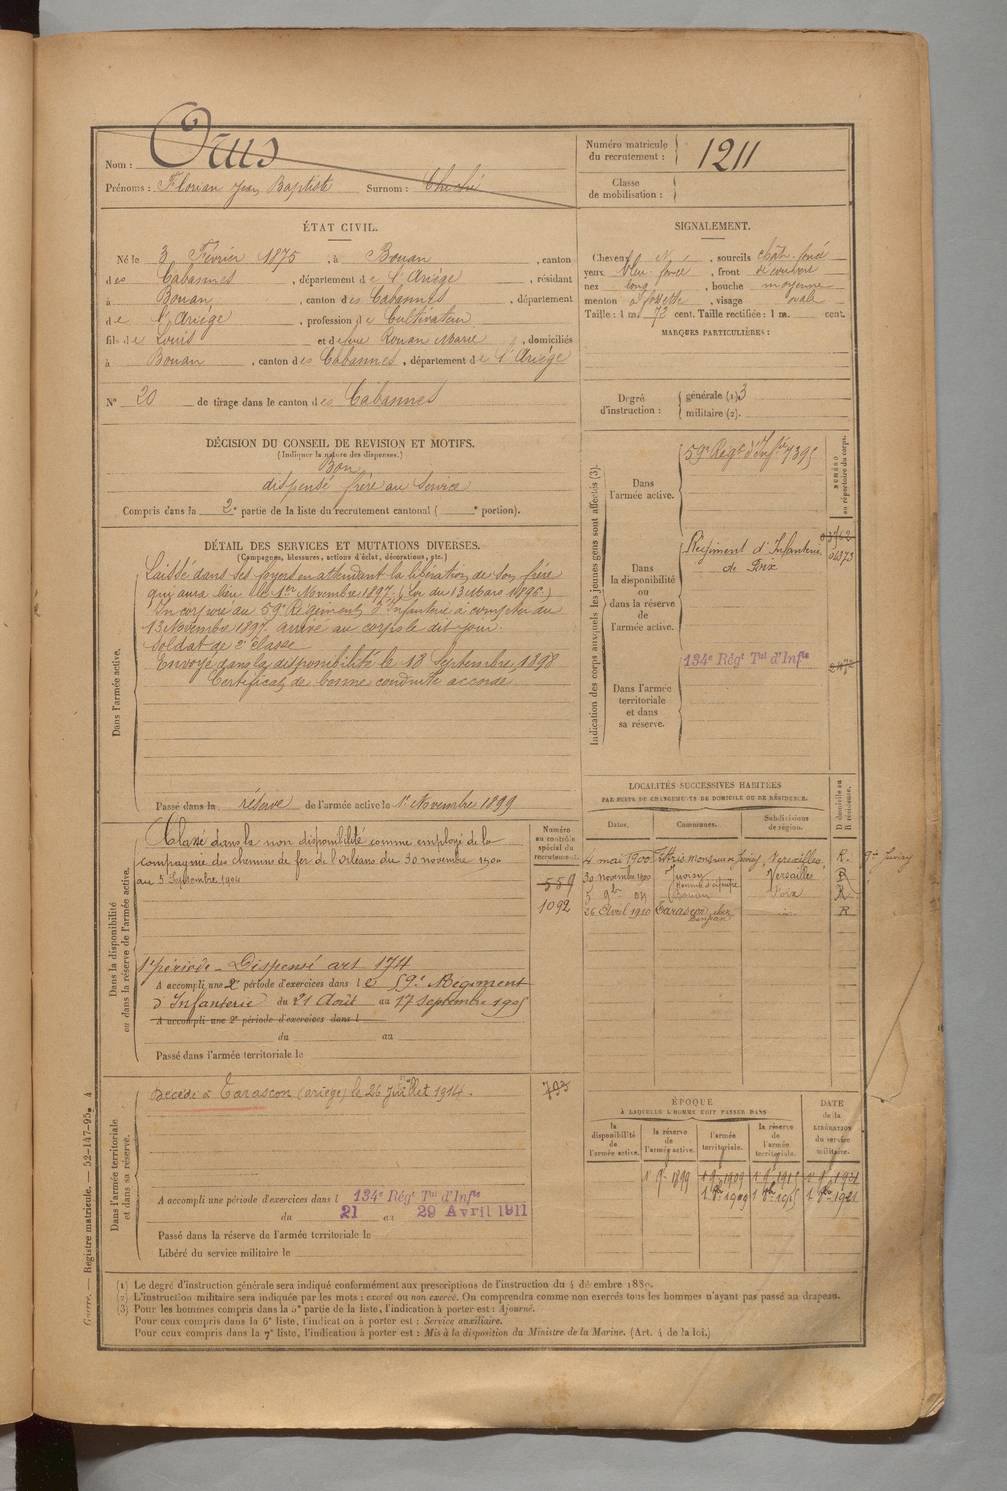 Nom : Orus
Prénoms : Florian Jean Baptiste Surnom :
Numéro matricule du recrutement : 1211
Classe de mobilisation :
ÉTAT CIVIL.
Né le 3 Février 1875, à Bouan, canton
des Cabannes, département de l'Ariège, résidant
à Bouan, canton des Cabannes, département
de l'Ariège, profession de Cultivateur
fils de Louis et de feue Rouan Marie, domiciliés
à Bouan, canton des Cabannes, département de l'Ariège
N° 20 de tirage dans le canton des Cabannes
SIGNALEMENT.
Cheveux, sourcils chât. foncé
yeux bleu foncé, front découvert
nez long, bouche moyenne
menton à fossette, visage ovale
Taille : 1 m. 72 cent. Taille rectifiée : 1 m. cent.
MARQUES PARTICULIÈRES :
Degré d'instruction : générale (1) 3
militaire (2).
DÉCISION DU CONSEIL DE REVISION ET MOTIFS.
(Indiquer la nature des dispenses.)
Bon
dispensé frère au Service
Compris dans la 2e partie de la liste du recrutement cantonal ( e portion).
DÉTAIL DES SERVICES ET MUTATIONS DIVERSES.
(Campagnes, blessures, actions d'éclat, décorations, etc.)
Dans l'armée active.
Laissé dans ses foyers en attendant la libération de son frère
qui aura lieu le 1er Novembre 1897. (Loi du 13 Mars 1896.)
Incorporé au 59e Régiment d'Infanterie à compter du
13 Novembre 1897. arrivé au corps le dit jour.
Soldat de 2e classe
Envoyé dans la disponibilité le 18 Septembre 1898
Certificat de bonne conduite accordé
Passé dans la réserve de l'armée active le 1er Novembre 1899
Indication des corps auxquels les jeunes gens sont affectés (3).
NUMÉRO au répertoire du corps.
Dans l'armée active.
59e Régt d'Infie 7395
Dans la disponibilité ou dans la réserve de l'armée active.
Régiment d'Infanterie
de Foix
04373
Dans l'armée territoriale et dans sa réserve.
134e Régt Tal d'Infie
LOCALITÉS SUCCESSIVES HABITÉES
PAR SUITE DE CHANGEMENTS DE DOMICILE OU DE RÉSIDENCE.
Dates. Communes. Subdivisions de région. D domicile ou R résidence.
4 mai 1900 Athis Mons Versailles. R.
30 novembre 1900 Juvisy Versailles R
5 9bre 04 Bouan Foix R
26 Avril 1910 Tarascon R
Dans la disponibilité ou dans la réserve de l'armée active.
Numéro au contrôle spécial du recrutement.
Classé dans la non disponibilité comme employé de la
compagnie des chemins de fer de l'Orléans du 30 novembre 1900
au 5 Septembre 1904
559
1092
1re période - Dispensé art 174
A accompli une 2e période d'exercices dans le 59e Régiment
d'Infanterie du 21 Août au 17 Septembre 1905
A accompli une 2e période d'exercices dans l
du au
Passé dans l'armée territoriale le
Dans l'armée territoriale et dans sa réserve.
Décédé à Tarascon (ariège) le 26 Juillet 1914.
793
A accompli une période d'exercices dans l 134e Régt Tal d'Infie
du 21 au 29 Avril 1911
Passé dans la réserve de l'armée territoriale le
Libéré du service militaire le
ÉPOQUE
À LAQUELLE L'HOMME DOIT PASSER DANS
DATE de la LIBÉRATION du service militaire.
la disponibilité de l'armée active. la réserve de l'armée active. l'armée territoriale. la réserve de l'armée territoriale.
1 9e 1899 1 9e 1909 1 9e 1915 1 9e 1921
1 9bre 1909 1 9bre 1915 1 9bre 1921
(1) Le degré d'instruction générale sera indiqué conformément aux prescriptions de l'instruction du 4 décembre 1889.
(2) L'instruction militaire sera indiquée par les mots : exercé ou non exercé. On comprendra comme non exercés tous les hommes n'ayant pas passé au drapeau.
(3) Pour les hommes compris dans la 5e partie de la liste, l'indication à porter est : Ajourné.
Pour ceux compris dans la 6e liste, l'indication à porter est : Service auxiliaire.
Pour ceux compris dans la 7e liste, l'indication à porter est : Mis à la disposition du Ministre de la Marine. (Art. 4 de la loi.)
Guerre. — Registre matricule. — 52-147-95. 4